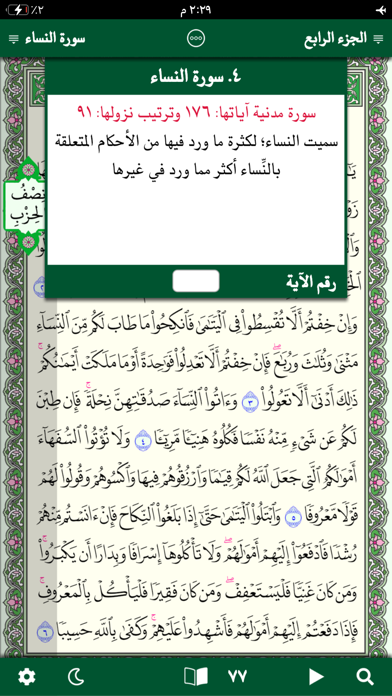 ٢:٢٩ م
٪٢
الجزء الرابع
سورة النساء
٤. سورة النساء
سورة مدنية آياتها: ١٧٦ وترتيب نزولها: ٩١
سميت النساء؛ لكثرة ما ورد فيها من الأحكام المتعلقة
بالنِّساء أكثر مما ورد في غيرها
رقم الآية
نِصْفُ
الحِزْبِ
وَإِنْ خِفْتُمْ أَلَّا تُقْسِطُوا۟ فِى ٱلْيَتَـٰمَىٰ فَٱنكِحُوا۟ مَا طَابَ لَكُم مِّنَ ٱلنِّسَآءِ
مَثْنَىٰ وَثُلَـٰثَ وَرُبَـٰعَ ۖ فَإِنْ خِفْتُمْ أَلَّا تَعْدِلُوا۟ فَوَٰحِدَةً أَوْ مَا مَلَكَتْ أَيْمَـٰنُكُمْ ۚ
ذَٰلِكَ أَدْنَىٰٓ أَلَّا تَعُولُوا۟ ٣ وَءَاتُوا۟ ٱلنِّسَآءَ صَدُقَـٰتِهِنَّ نِحْلَةً ۚ فَإِن طِبْنَ
لَكُمْ عَن شَىْءٍ مِّنْهُ نَفْسًا فَكُلُوهُ هَنِيٓـًٔا مَّرِيٓـًٔا ٤ وَلَا تُؤْتُوا۟ ٱلسُّفَهَآءَ
أَمْوَٰلَكُمُ ٱلَّتِى جَعَلَ ٱللَّهُ لَكُمْ قِيَـٰمًا وَٱرْزُقُوهُمْ فِيهَا وَٱكْسُوهُمْ وَقُولُوا۟ لَهُمْ
قَوْلًا مَّعْرُوفًا ٥ وَٱبْتَلُوا۟ ٱلْيَتَـٰمَىٰ حَتَّىٰٓ إِذَا بَلَغُوا۟ ٱلنِّكَاحَ فَإِنْ ءَانَسْتُم مِّنْهُمْ
رُشْدًا فَٱدْفَعُوٓا۟ إِلَيْهِمْ أَمْوَٰلَهُمْ ۖ وَلَا تَأْكُلُوهَآ إِسْرَافًا وَبِدَارًا أَن يَكْبَرُوا۟ ۚ
وَمَن كَانَ غَنِيًّا فَلْيَسْتَعْفِفْ ۖ وَمَن كَانَ فَقِيرًا فَلْيَأْكُلْ بِٱلْمَعْرُوفِ ۚ
فَإِذَا دَفَعْتُمْ إِلَيْهِمْ أَمْوَٰلَهُمْ فَأَشْهِدُوا۟ عَلَيْهِمْ ۚ وَكَفَىٰ بِٱللَّهِ حَسِيبًا ٦
٧٧